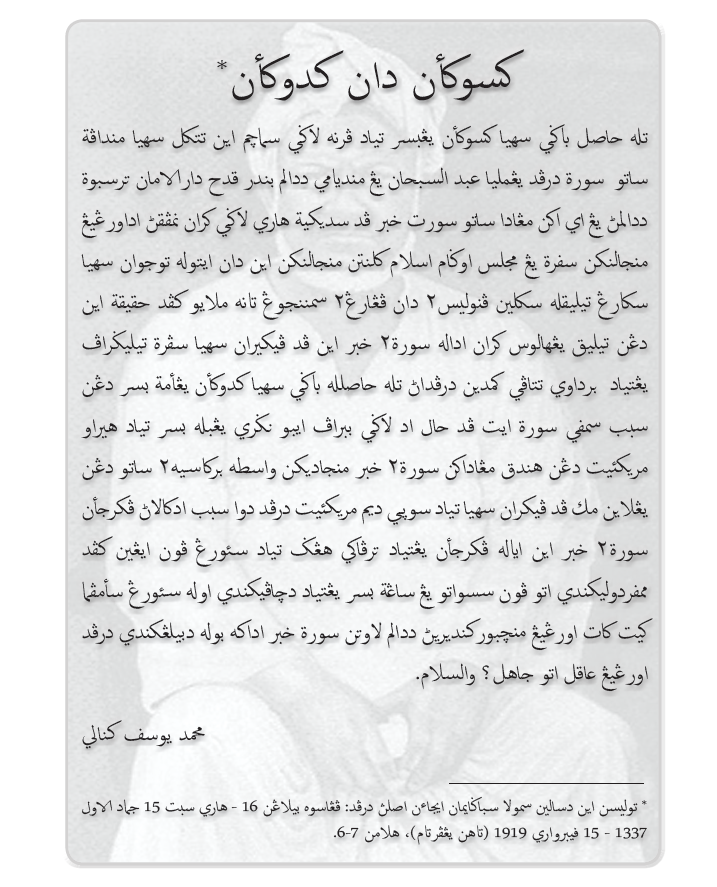 كسوكأن دان كدوكأن*
تله حاصل باݢي سهيا كسوكأن يڠبسر تياد ڤرنه لاݢي سماچم اين تتكل سهيا منداڤة
ساتو سورة درڤد يڠمليا عبد السبحان يڠ منديامي ددالم بندر قدح دارالامان ترسبوة
ددالمڽ يڠ اي اكن مڠادا ساتو سورت خبر ڤد سديكية هاري لاݢي كران نمڤقڽ اداورڠيڠ
منجالنكن سفرة يڠ مجلس اوݢام اسلام كلنتن منجالنكن اين دان ايتوله توجوان سهيا
سكارڠ تيليقله سكلين ڤنوليس٢ دان ڤڠارڠ٢ سمننجوڠ تانه ملايو كڤد حقيقة اين
دڠن تيليق يڠهالوس كران اداله سورة٢ خبر اين ڤد ڤيكيران سهيا سڤرة تيليݢراف
يڠتياد برداوي تتاڤي كمدين درڤداڽ تله حاصلله باݢي سهيا كدوكأن يڠأمة بسر دڠن
سبب سمڤي سورة ايت ڤد حال اد لاݢي ببراڤ ايبو نݢري يڠبله بسر تياد هيراو
مريكئيت دڠن هندق مڠاداكن سورة٢ خبر منجاديكن واسطه بركاسيه٢ ساتو دڠن
يڠلاين مك ڤد ڤيكيران سهيا تياد سوڽي ديم مريكئيت درڤد دوا سبب ادكالاڽ ڤكرجأن
سورة٢ خبر اين اياله ڤكرجأن يڠتياد ترڤاكي هڠݢ تياد سئورڠ ڤون ايڠين كڤد
ممڤردوليكندي اتو ڤون سسواتو يڠ ساڠة بسر يڠتياد دچاڤيكندي اوله سئورڠ سأمڤما
كيت كات اورڠيڠ منچبوركنديرين ددالم لاوتن سورة خبر اداكه بوله دبيلڠكندي درڤد
اورڠيڠ عاقل اتو جاهل؟ والسلام.
محمد يوسف كنالي
* توليسن اين دسالين سمولا سباݢايمان ايجاءن اصلڽ درڤد: ڤڠاسوه بيلاڠن 16 - هاري سبت 15 جماد الاول
1337 - 15 فيبرواري 1919 (تاهن يڠڤرتام)، هلامن 7-6.